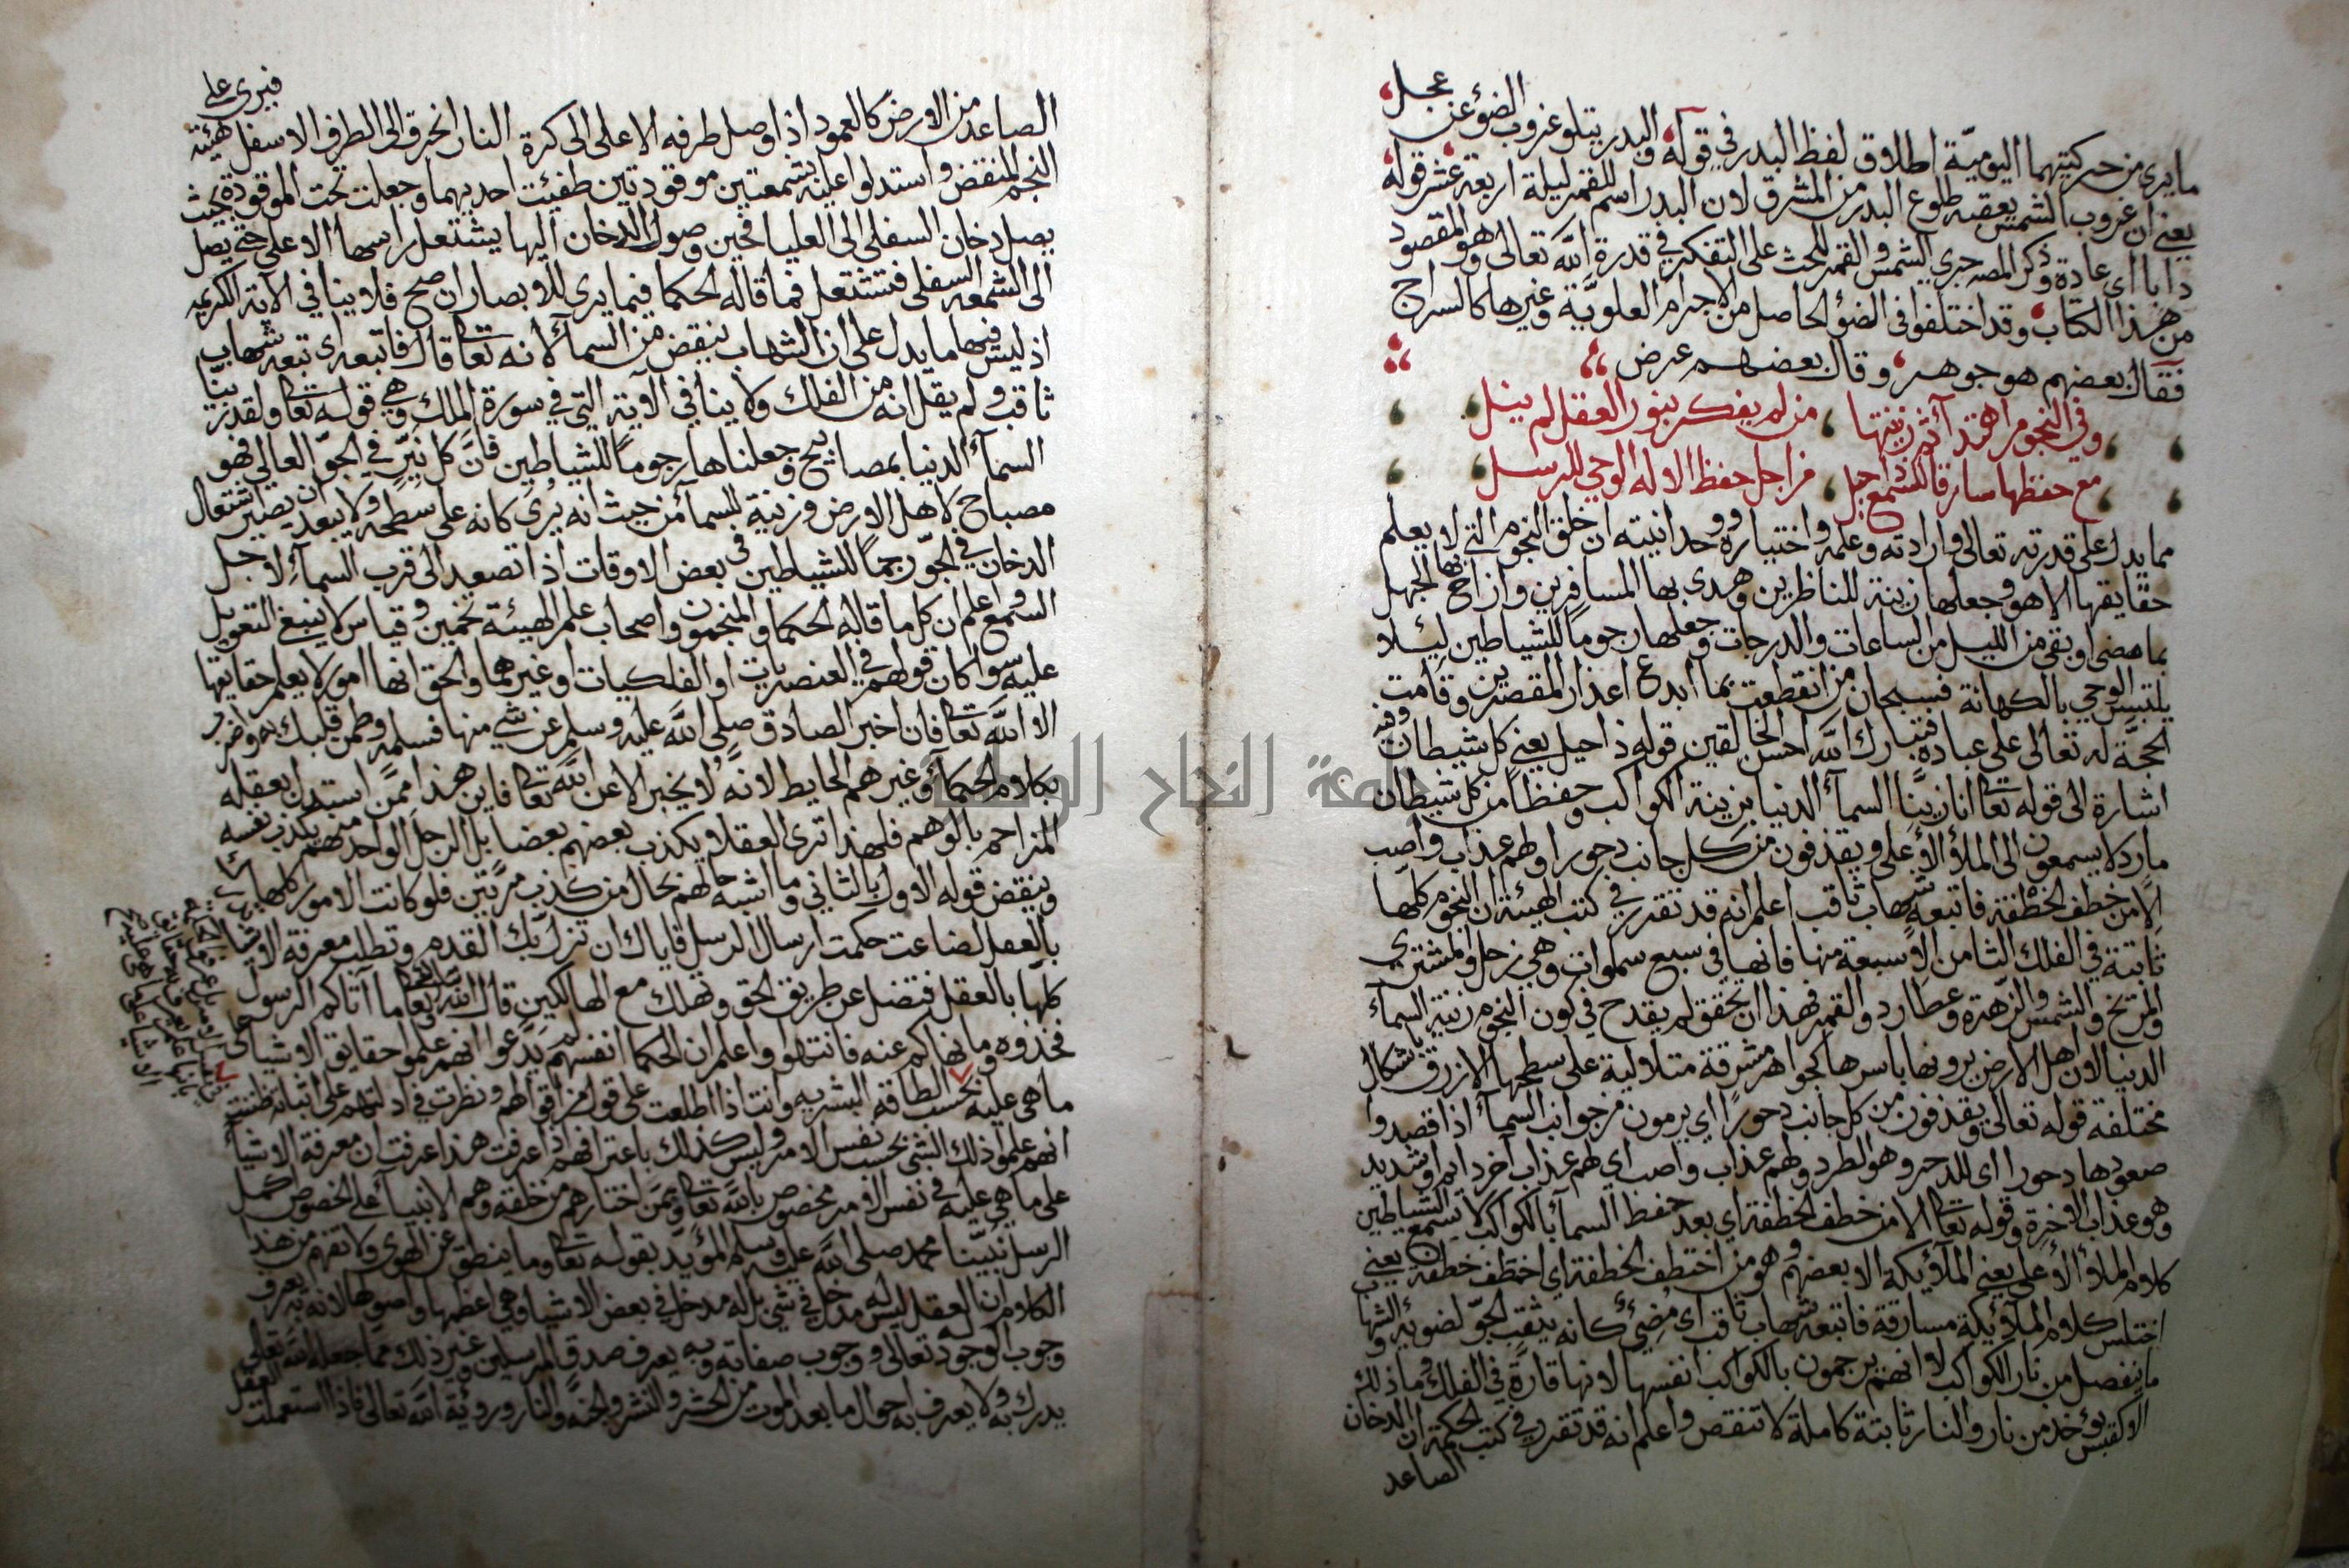 ما يرى من حركيتهما اليوميّة اطلاق لفظ البدر في قوله والبدر يتلو غروب الضوء عن عجل
يعني ان غروب الشمس يعقبه طلوع البدر من المشرق لان البدر اسم للقمر ليلة اربعة عشر قوله
دابا اى عادة وذكر المص جري الشمس والقمر للحث على التفكر في قدرة الله تعالى وهو المقصود
من هذا الكتاب وقد اختلفوا في الضؤ الحاصل من الاجرام العلويّة وغيرها كالسراج
فقال بعضهم هو جوهر وقال بعضهم عرض
وفي النجوم اهتداء ثم زينتها من لم يفكر بنور العقل لم ينل
مع حفظها سارقا للسمع ذا حيل من اجل حفظ الاله الوحي للرسل
مما يدل على قدرته تعالى وارادته وعلمه واختياره ووحدانيته ان خلق النجوم التي لا يعلم
حقايقها الا هو وجعلها زينة للناظرين وهدى بها المسافرين وازاح بها الجهل
بما مضى او بقي من الليل من الساعات والدرجات وجعلها رجوماً للشياطين لئلا
يلتبس الوحي بالكهانة فسبحان من انقطعت بما ابدع اعذار المقصرين وقامت
الحجّة له تعالى على عباده فتبارك الله احسن الخالقين قوله ذا حيل يعني كل شيطان وفيه
اشارة الى قوله تعا انا زيّنّا السمآ الدنيا بزينة الكواكب وحفظاً من كل شيطان
مارد لا يسمعون الى الملأ الأعلى ويقذفون من كل جانب دحورا ولهم عذاب واصب
الّا من خطف الخطفة فاتبعه شهاب ثاقب اعلم انه قد تقرر في كتب الهيئة ان النجوم كلها
ثابتة في الفلك الثامن الا سبعة منها فانها في سبع سموات وهي زحل والمشتري
والمريخ والشمس والزهرة وعطارد والقمر فهذا ان تحقق لم يقدح في كون النجوم زينة السمآء
الدنيا لان اهل الارض يرونها باسرها كجواهر مشرقة متلالية على سطحها الازرق باشكال
مختلفة قوله تعالى ويقذفون من كل جانب دحورًا اي يرمون من جوانب السمآ اذا قصدوا
صعودها دحورا اى للدحر وهو الطرد ولهم عذاب واصب اي لهم عذاب آخر دايم او شديد
وهو عذاب الاخرة وقوله تعا الا من خطف الخطفة اي بعد حفظ السمآ بالكواكب لا تسمع الشياطين
كلام الملأ الأعلى يعني الملآئيكة الا بعضهم وهو من اختطف الخطفة اي اختطف خطفة يعني
اختلس كلام الملآئيكة مسارقة فاتبعه شهاب ثاقب اى مضئ كانه يثقب الجوّ لضوئه والشهاب
ما ينفصل من نار الكواكب لا انهم يرجمون بالكواكب انفسها لانها قارة في الفلك وما ذلك
الا كقبس يؤخذ من نار والنار ثابتة كاملة لا تنقص واعلم انه قد تقرر في كتب الحكمة ان الدخان
الصاعد
الصاعد من الارض كالعمود اذا وصل طرفه الاعلى الى كرة النار احرق الى الطرف الاسفل فيرى على هيئة
النجم المنقض واستدلوا عليه بشمعتين موقودتين طفيئت احديهما وجعلت تحت الموقودة بحيث
يصل دخان السفلى الى العليا فحين وصول الدخان اليها يشتعل راسها الاعلى حتى يصل
الى الشمعة السفلى فتشتعل فما قاله الحكما فيما يرى للابصار ان صح فلا ينافي الآية الكريمه
اذ ليس فيها ما يدل على ان الشهاب ينقض من السمآء لانه تعا قال فاتبعه اى تبعه شهاب
ثاقب ولم يقل انه من الفلك ولا ينافي الآية التي في سورة الملك وهي قوله تعا ولقد زيّنّا
السمآء الدنيا بمصابيح وجعلناها رجوماً للشياطين فانّ كل نيّر في الجوّ العالي فهو
مصباح لاهل الارض وزينة للسمآء من حيث انه يُرى كانه على سطحه ولا يبعد ان يصير اشتعال
الدخان في الجوّ رجمًا للشياطين في بعض الاوقات اذا تصعد الى قرب السمآء لاجل
السمع واعلم ان كل ما قاله الحكما والمنجمون واصحاب علم الهيئة تخمين وقياس لا ينبغي التعويل
عليه سوا كان قولهم في العنصريات او الفلكيات او غيرهما والحق انها امور لا يعلم حقايقها
الا الله تعا فان اخبر الصادق صلى الله عليه وسلم عن شي منها فسلمه وطمن قلبك به واضرب
بكلام الحكمآء وغيرهم الحايط لانه لا يخبر الا عن الله تعا فاين هذا ممن استدل بعقله
المزاحم بالوهم فلهذا ترى العقلا يكذب بعضهم بعضا بل الرجل الواحد منهم يكذب نفسه
وينقض قوله الاول بالثاني وما اشبه حالهم بحال من كذب مرّتين فلو كانت الامور كلها تعرف
بالعقل لضاعت حكمت ارسال الرسل فاياك ان تزلّ بك القدم وتطلب معرفة الاشيا
كلها بالعقل فتضل عن طريق الحق وتهلك مع الهالكين قال الله تعا وما آتاكم الرسول
فخذوه وما نهاكم عنه فانتهوا واعلم ان الحكما انفسهم لم يدّعوا انهم علموا حقايق الاشيا على
ما هي عليه بحسب الطاقة البشريه وانت اذا اطلعت على قول من اقوالهم ونظرت في ادلتهم على اثباته ظننت
انهم علموا ذلك الشي بحسب نفس الامر وليس كذلك باعترافهم اذا عرفت هذا عرفت ان معرفة الاشيا
على ما هي عليه في نفس الامر مخصوص بالله تعا وبمن اختارهم من خلقه وهم الانبيآ على الخصوص اكمل
الرسل نبيّنا محمد صلى الله عليه وسلم المؤيّد بقوله تعا وما ينطق عن الهوى ولا تفهم من هذا
الكلام ان العقل ليس له مدخل في شي بل له مدخل في بعض الاشيا وهي اعظمها واصولها لانه به يعرف
وجوب الوجود له تعالى ووجوب صفاته وبه يعرف صدق المرسلين وغير ذلك مما جعله الله تعالى
يدرك به ولا يعرف به احوال ما بعد الموت من الحشر والنشر والجنّة والنار ورؤية الله تعالى فاذا استعملت العقل
جامعة النجاح الوطنية